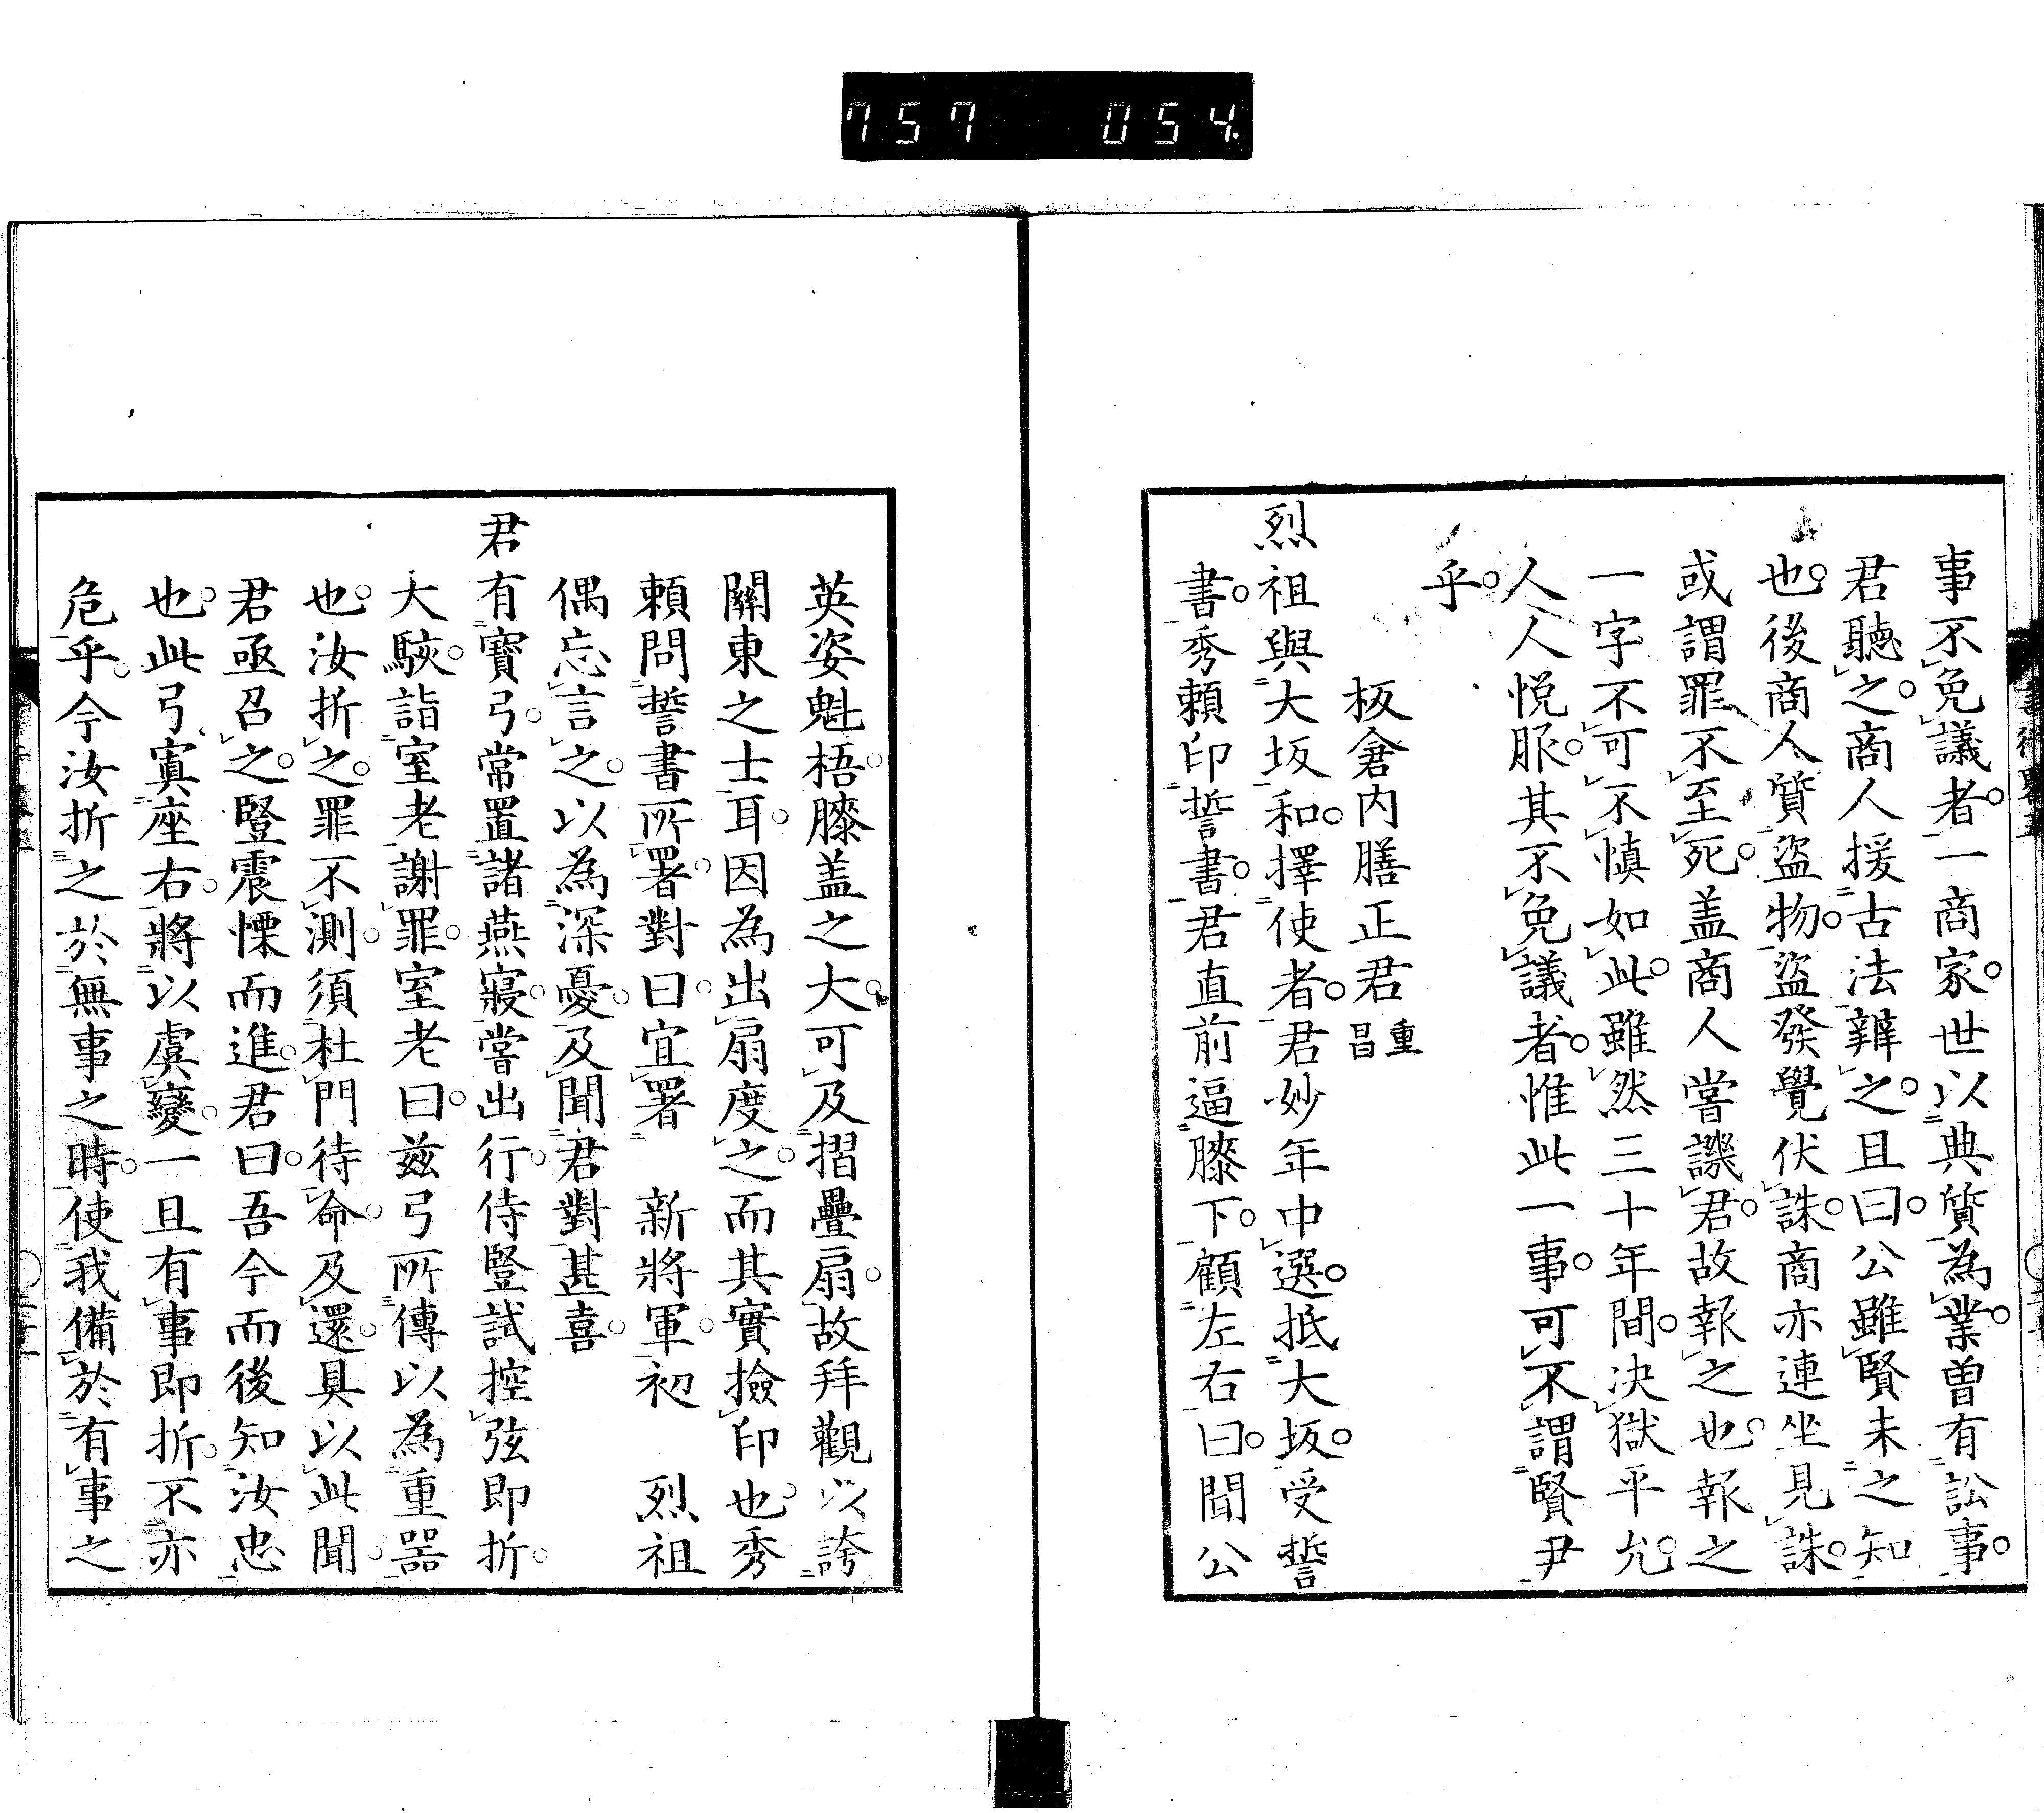 757 054
事不免議者一商家世以典質為業曽有訟事
君聽之商人援古法辨之且曰公雖賢未之知
也後商人質盜物盜發覺伏誅商亦連坐見誅
或謂罪不至死盖商人嘗譏君故報之也報之
一字不可不慎如此雖然三十年間决獄平允
人人悦服其不免議者惟此一事可不謂賢尹
乎
板倉内膳正君重昌
烈祖與大坂和擇使者君妙年中選抵大坂受誓
書秀頼印誓書君直前逼膝下顧左右曰聞公
英姿魁梧膝盖之大可及摺疊扇故拜觀以誇
關東之士耳因為出扇度之而其實撿印也秀
頼問誓書所署對曰宜署 新將軍初 烈祖
偶忘言之以為深憂及聞君對甚喜
君有寶弓常置諸燕寢嘗出行侍豎試控弦即折
大駭詣室老謝罪室老曰兹弓所傳以為重器
也汝折之罪不測須杜門待命及還具以此聞
君亟召之豎震慄而進君曰吾今而後知汝忠
也此弓寘座右將以虞變一旦有事即折不亦
危乎今汝折之於無事之時使我備於有事之